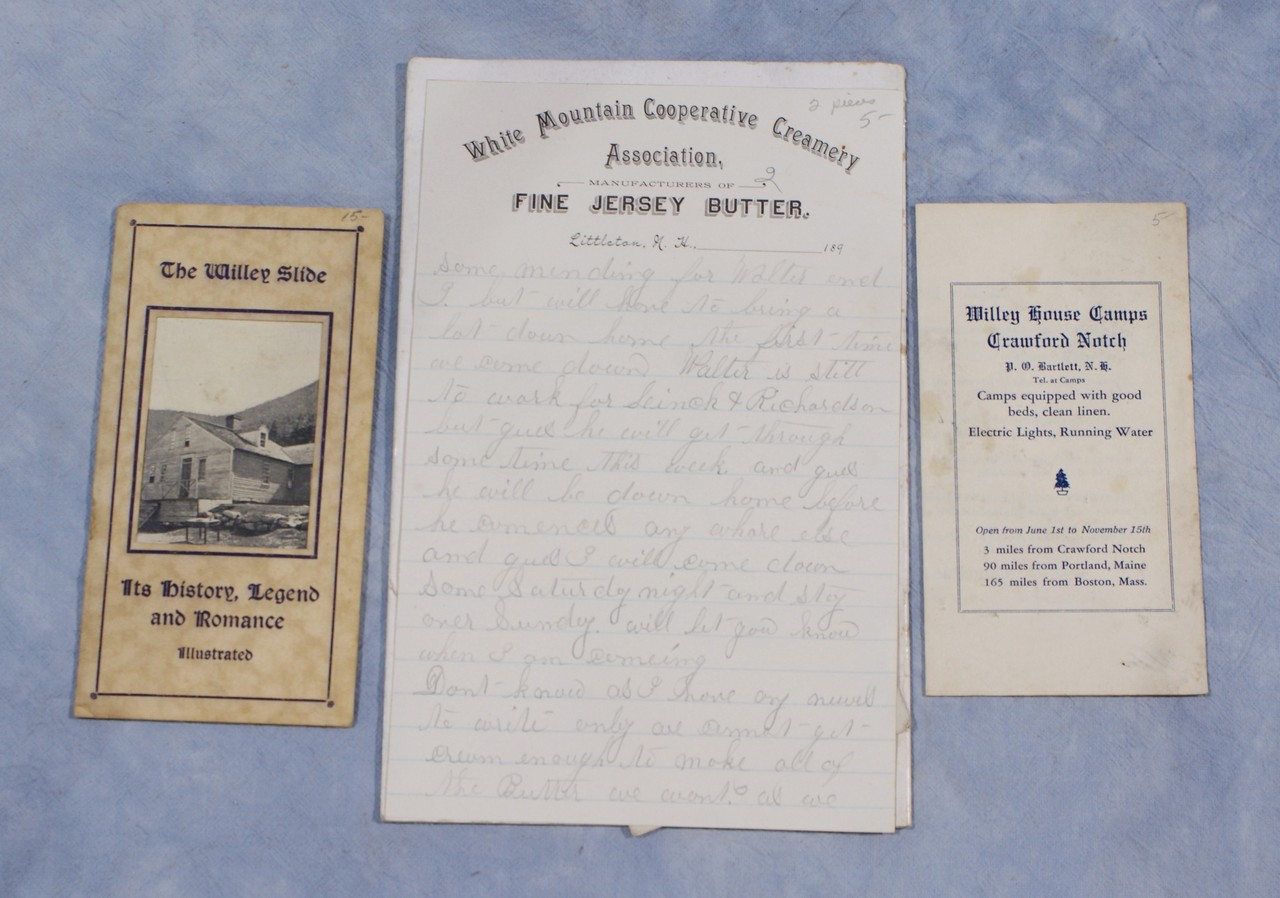 15-
The Willey Slide
Its History, Legend
and Romance
Illustrated
2 pieces
5-
White Mountain Cooperative Creamery
Association,
MANUFACTURERS OF
2
FINE JERSEY BUTTER.
Littleton, N. H., 189
some mending for Walter and
I but will have to bring a
lot down home the first time
we come down Walter is still
to work for & Richardson
but gues he will get through
some time this week and gues
he will be down home before
he comences any whare else
and gues I will come down
some Saturday night and stay
over Sundy. will let you know
when I am comeing
Dont know as I have any news
to write only we cannot get
cream enough to make all of
the Butter we want. as we
5-
Willey House Camps
Crawford Notch
P. O. Bartlett, N. H.
Tel. at Camps
Camps equipped with good
beds, clean linen.
Electric Lights, Running Water
Open from June 1st to November 15th
3 miles from Crawford Notch
90 miles from Portland, Maine
165 miles from Boston, Mass.